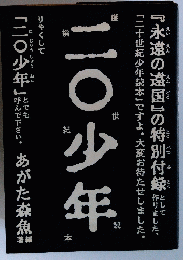 『永遠の遠国』の特別付録として作りました、
「二十世紀少年読本」ですよ、大変お待たせしました。
二〇少年
りゃくして
「二〇少年」とでも呼んで下さい。
あがた森魚